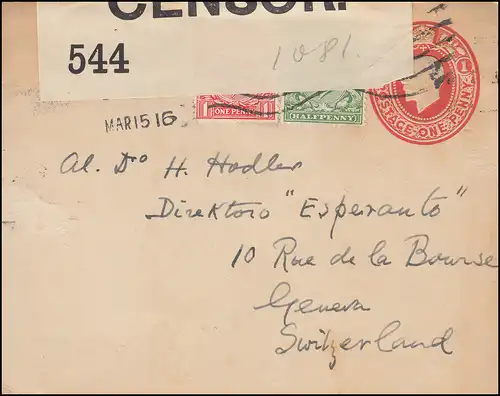 CENSOR.
544
1081.
1 ONE PENNY 1
HALFPENNY
POSTAGE·ONE·PENNY
1
MAR 15 16
Al. Dro H. Hodler
Direktoro "Esperanto"
10 Rue de la Bourse
Geneva
Switzerland